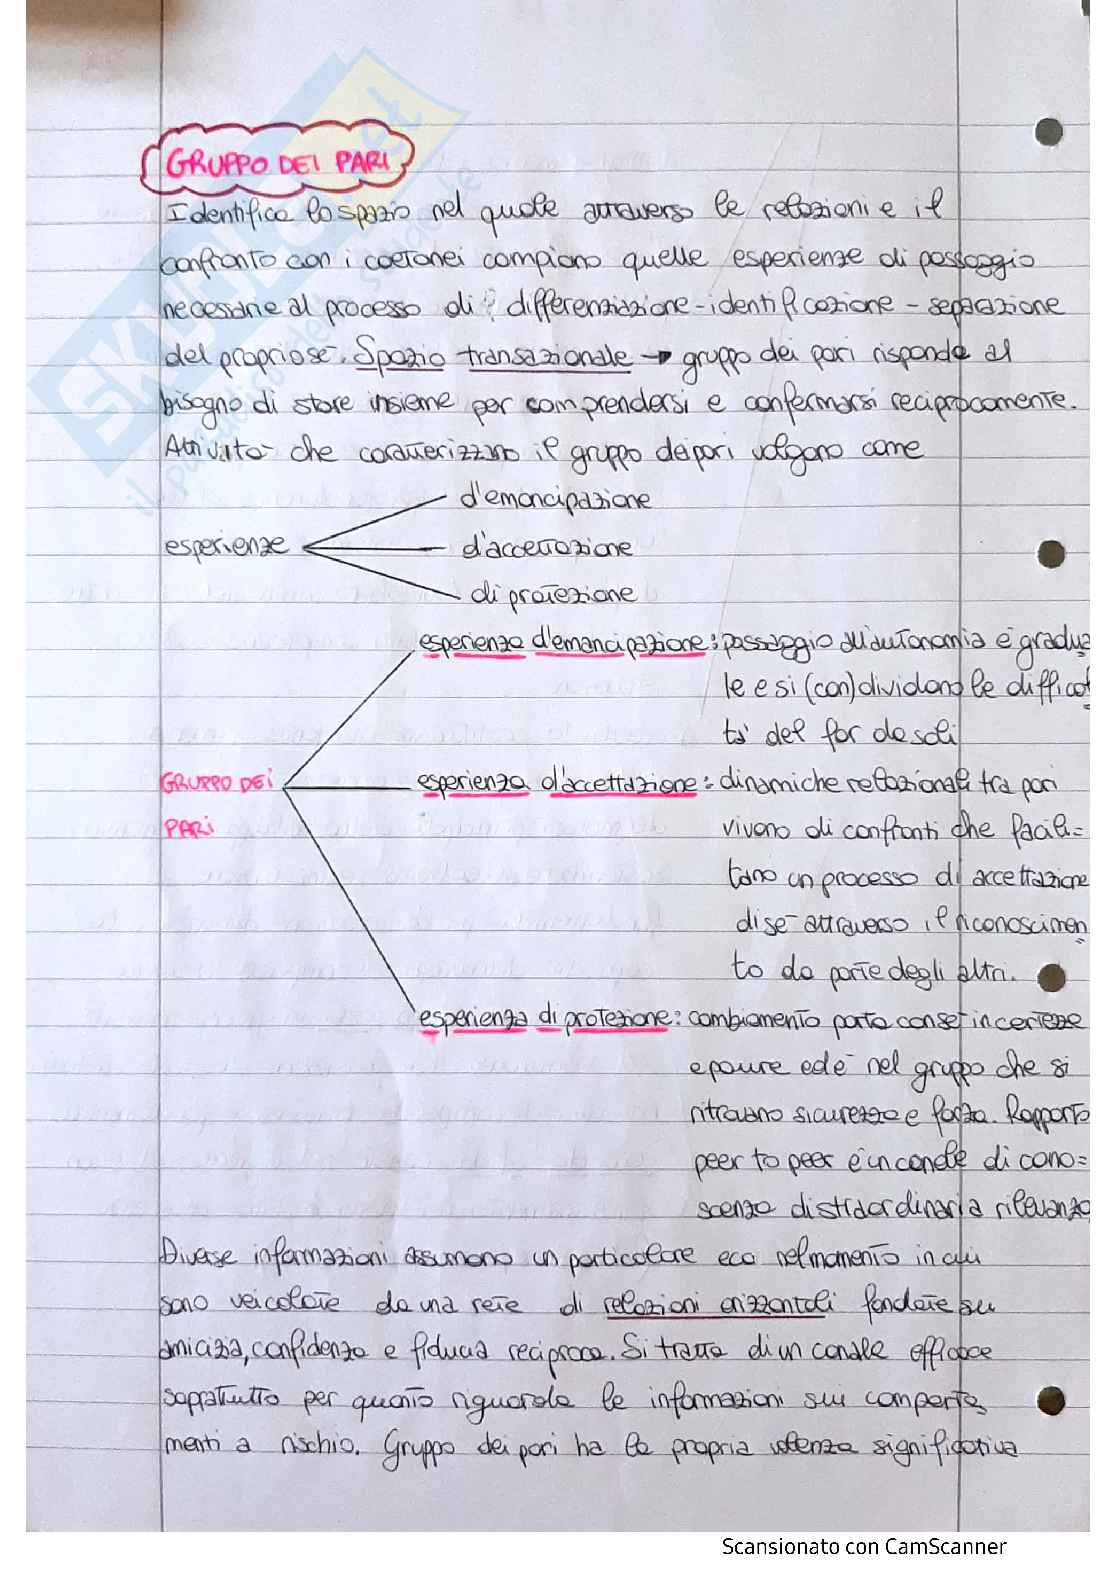 GRUPPO DEI PARI
Identifica lo spazio nel quale attraverso le relazioni e il
confronto con i coetanei compiono quelle esperienze di passaggio
necessarie al processo di: differenziazione - identificazione - separazione
del proprio sé. Spazio transazionale → gruppo dei pari risponde al
bisogno di stare insieme per comprendersi e confermarsi reciprocamente.
Attività che caratterizzano il gruppo dei pari valgono come
d'emancipazione
esperienze
d'accettazione
di protezione
esperienza d'emancipazione: passaggio all'autonomia è gradua
le e si (con)dividono le difficol
tà del far da soli
GRUPPO DEI
esperienza d'accettazione: dinamiche relazionali tra pari
PARI
vivono di confronti che facili=
tano un processo di accettazione
di sé attraverso il riconoscimen
to da parte degli altri.
esperienza di protezione: cambiamento porta con sé incertezze
e paure ed è nel gruppo che si
ritrovano sicurezza e forza. Rapporto
peer to peer è un canale di cono=
scenza di straordinaria rilevanza
Diverse informazioni assumono un particolare eco nel momento in cui
sono veicolate da una rete di relazioni orizzontali fondate su
amicizia, confidenza e fiducia reciproca. Si tratta di un canale efficace
soprattutto per quanto riguarda le informazioni sui comporta
menti a rischio. Gruppo dei pari ha la propria valenza significativa
Scansionato con CamScanner